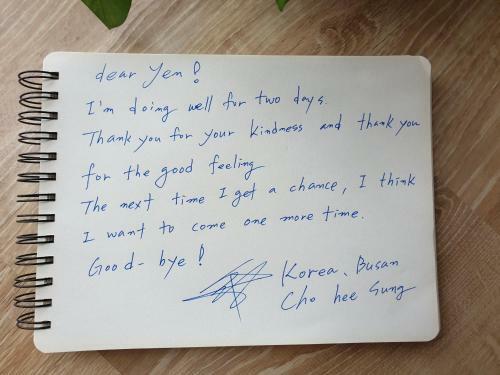 dear Yen!
I'm doing well for two days.
Thank you for your kindness and thank you
for the good feeling
The next time I get a chance, I think
I want to come one more time.
Good-bye!
Korea, Busan
Cho hee Sung